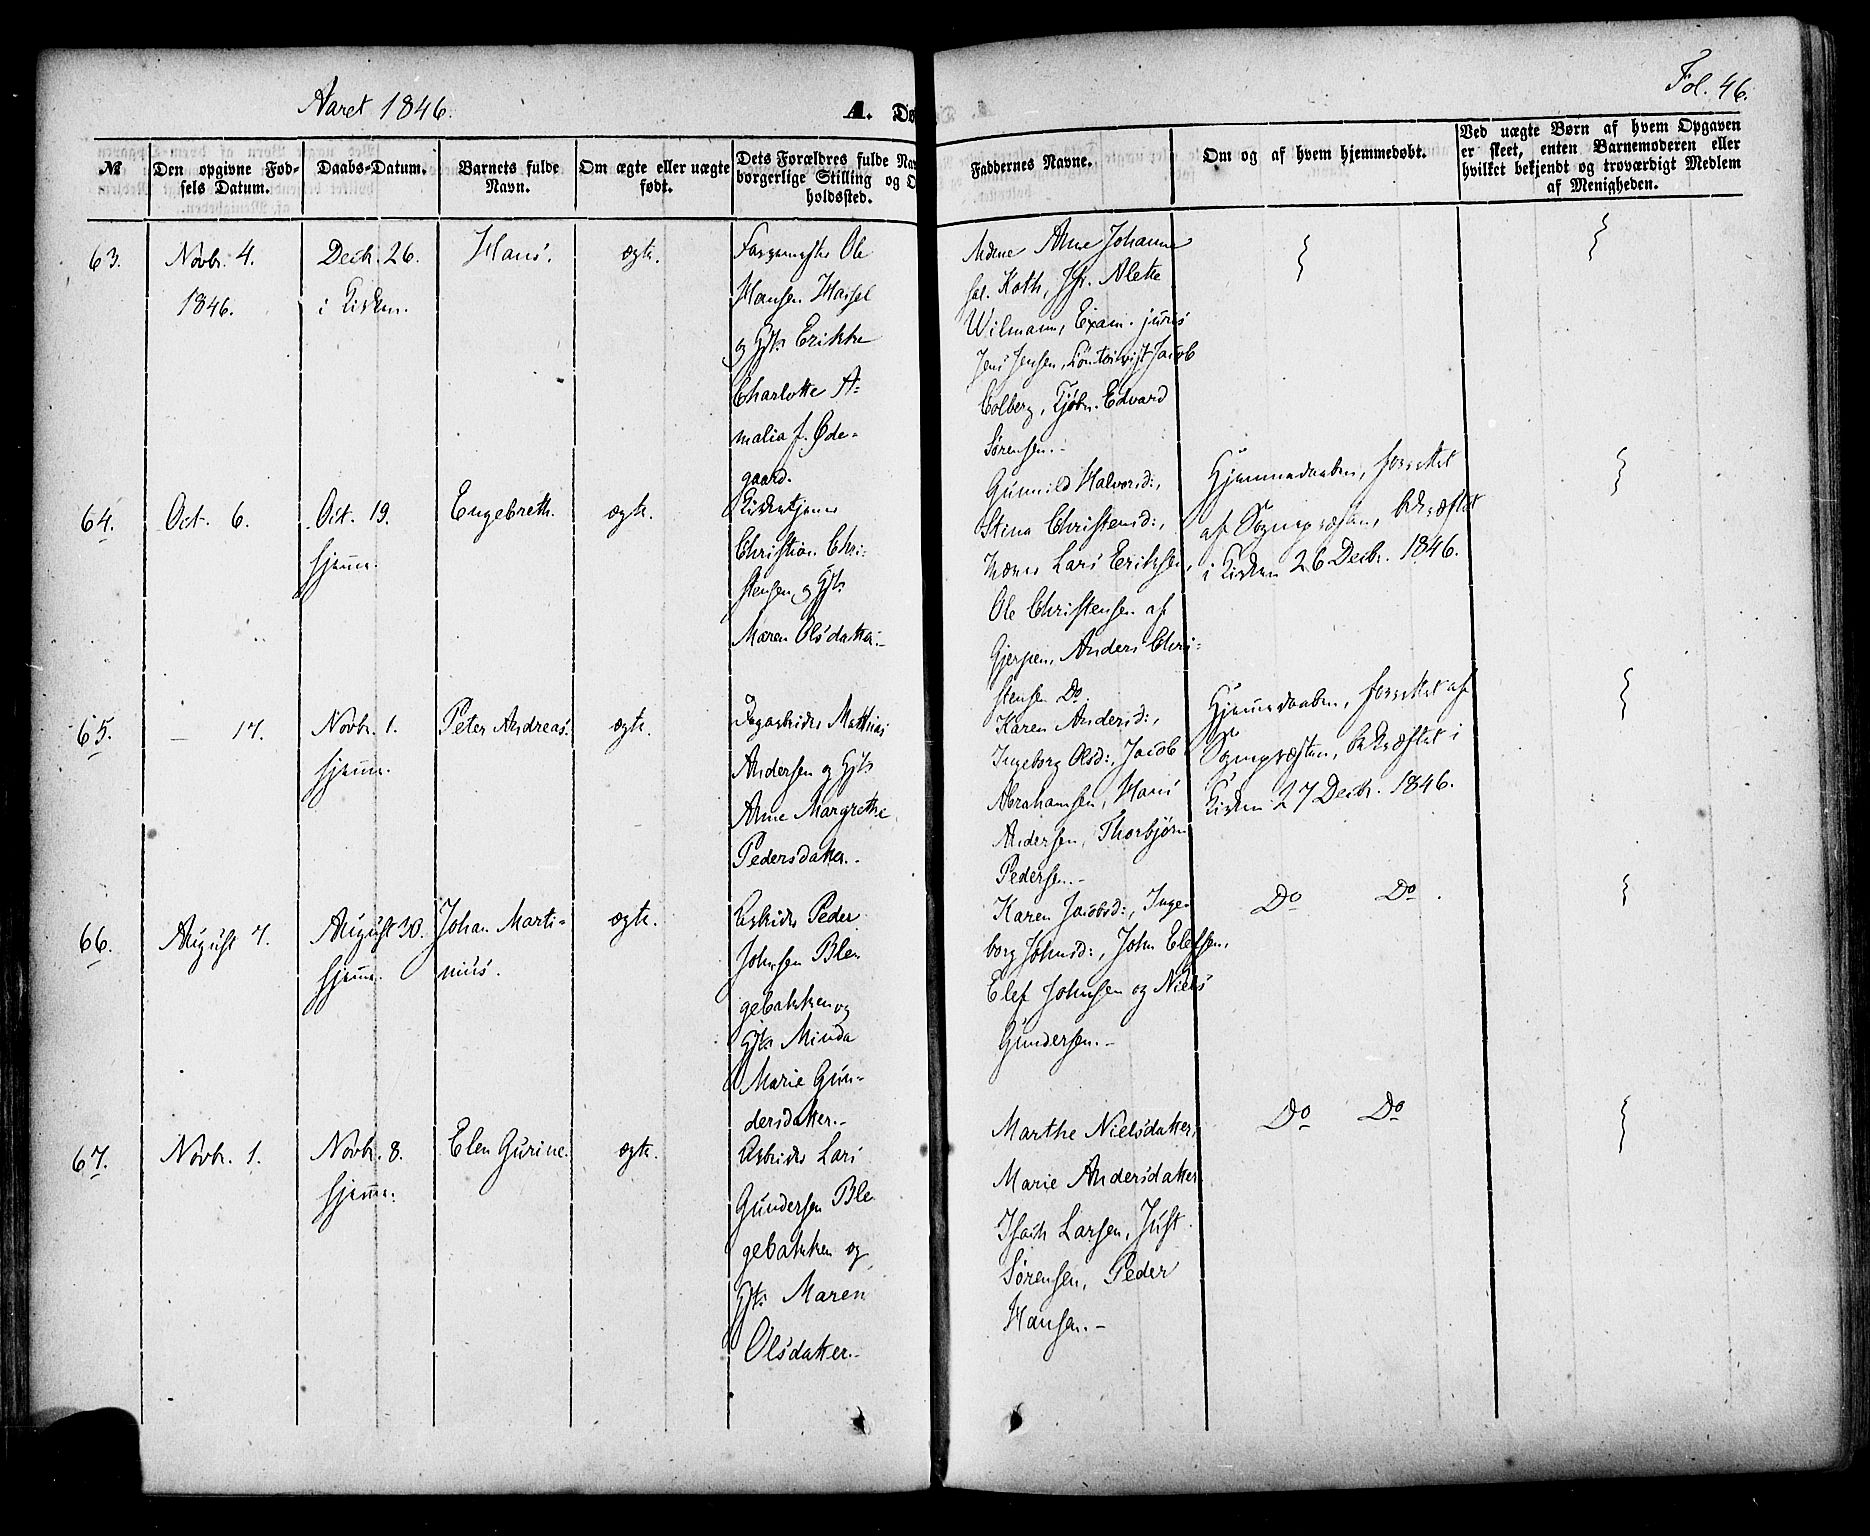 Aaret 1846.
A. Dø
Fol. 46.
№
Den opgivne Fød-
sels Datum.
Daabs-Datum.
Barnets fulde
Navn.
Om ægte eller uægte
født.
Dets Forældres fulde Na
borgerlige Stilling og O
holdssted.
Faddernes Navne.
Om og af hvem hjemmedøbt.
Ved uægte Børn af hvem Opgaven
er skeet, enten Barnemoderen eller
hvilket bekjendt og troværdigt Medlem
af Menigheden.
63.
Novbr. 4.
1846.
Decbr. 26.
i Kirken.
Hans.
ægte.
Ole
Hansen Hassel
og Hst. Erikke
Charlotte A-
malia f. Øde-
gaard.
Mdme Anne Johanne
sal. Koth, Jfr. Alette
Wilmann, Exam. juris
Jens Jensen, Jacob
Colberg, Kjøbm. Edvard
Sørensen.-
64.
Oct. 6.
Oct. 19.
hjemme.
Engebreth.
ægte.
Kirketjener
Christian Chri-
stensen og Hst.
Maren Olsdatter.-
Gunnild Halvorsd:,
Stina Christensd:,
Lars Eriksen,
Ole Christensen af
Gjerpen, Anders Chri-
stensen Do.
Hjemmedaaben, forrettet
af Sognepræsten, bekræftet
i Kirken 26 Decbr. 1846.
65.
— 17.
Novbr. 1.
hjemme.
Peter Andreas.
ægte.
Mathias
Andersen og Hst.
Anne Margrethe
Pedersdatter.-
Karen Andersd:,
Ingeborg Olsd:, Jacob
Abrahamsen, Hans
Andersen, Thorbjørn
Pedersen.-
Hjemmedaaben, forrettet af
Sognepræsten, bekræftet i
Kirken 27 Decbr. 1846.
66.
August 7.
August 30.
hjemme.
Johan Marti-
nius.
ægte.
Arbeider Peder
Johnsen Ble
gebakken og
Hst. Minda
Marie Gun-
dersdatter.-
Karen Jacobsd:, Inge-
borg Johnsd:, John Elefsen,
Elef Johnsen og Niels
Gundersen.-
Do Do.
67.
Novbr. 1.
Novbr. 8.
hjemme.
Elen Gurine.
ægte.
Arbeider Lars
Gundersen Ble
gebakken og
Hst. Maren
Olsdatter.-
Marthe Nielsdatter,
Marie Andersdatter
Isach Larsen, Just
Sørensen, Peder
Hansen.-
Do Do